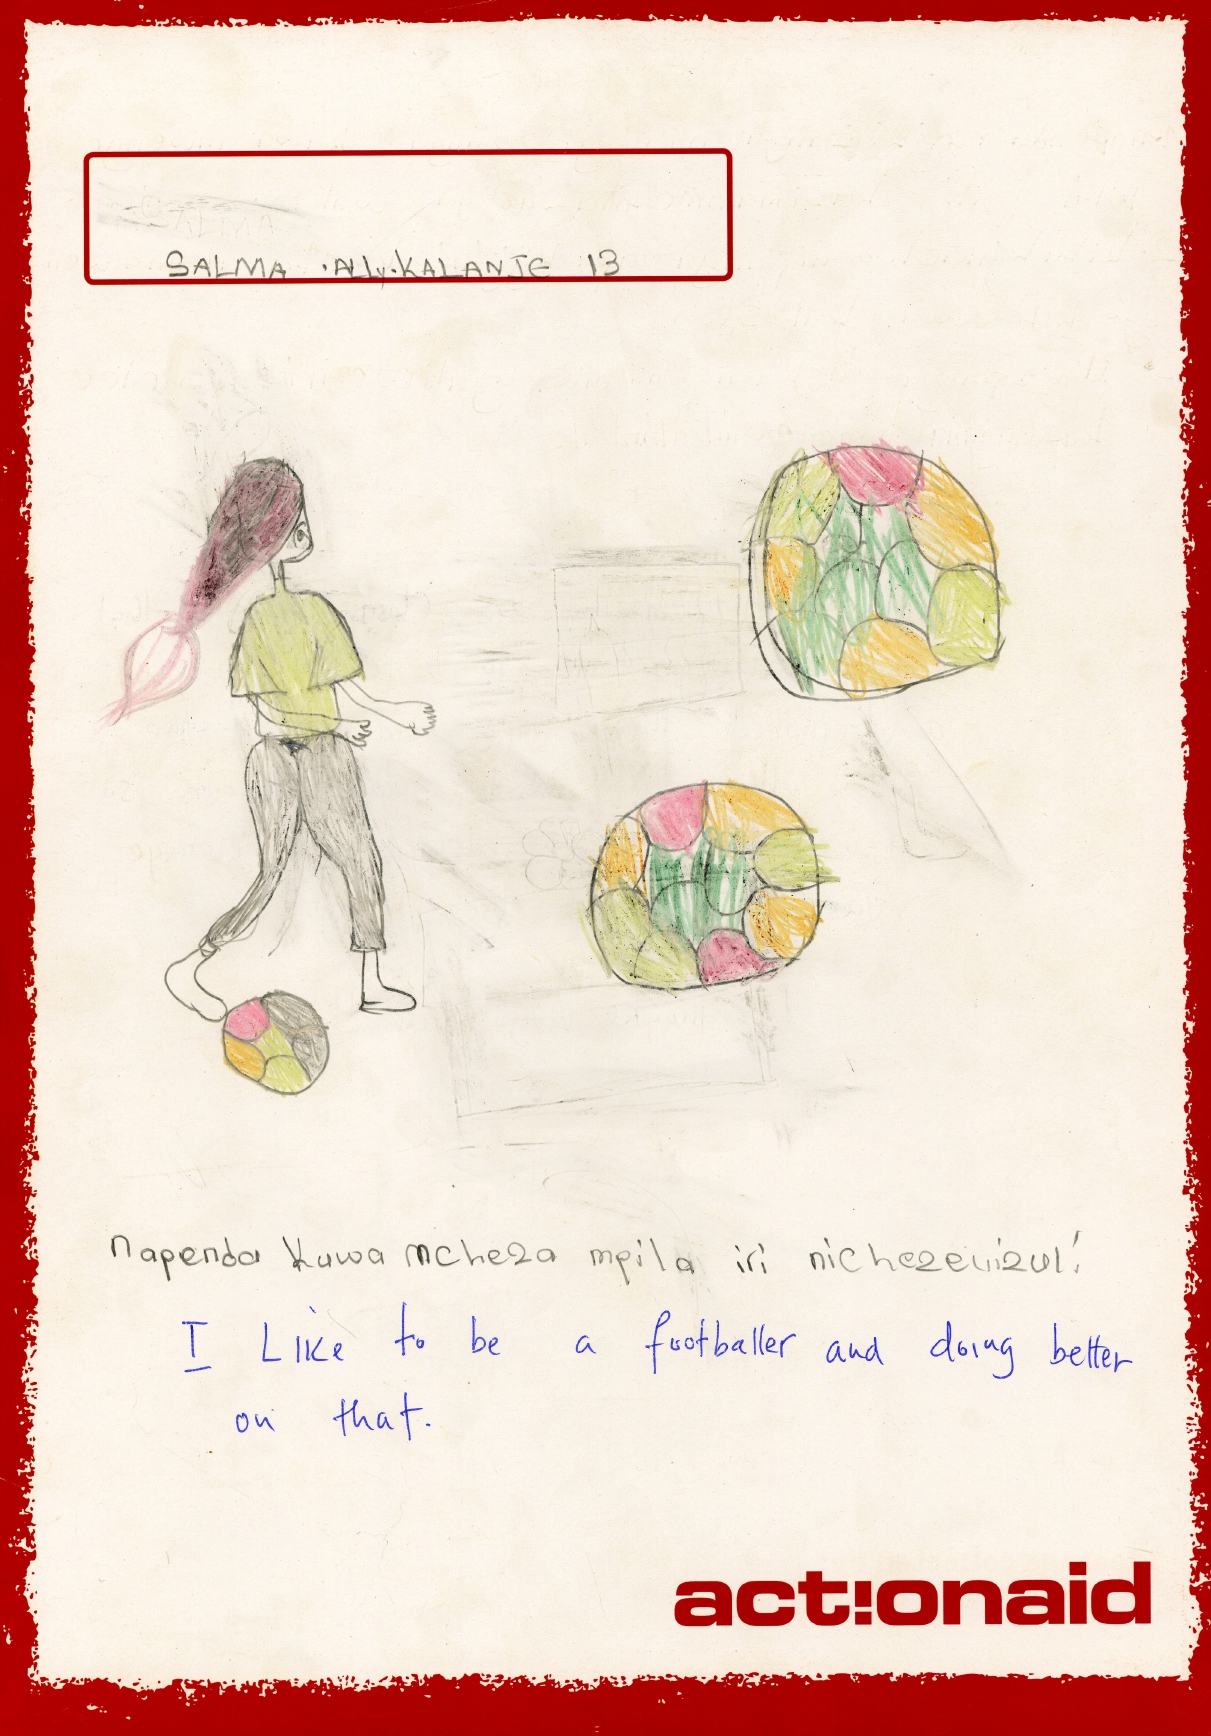 SALMA .ALLY.KALANJE 13
Napenda kuwa mcheza mpila iri nichezevizuli
I Like to be a footballer and doing better
on that.
act!onaid